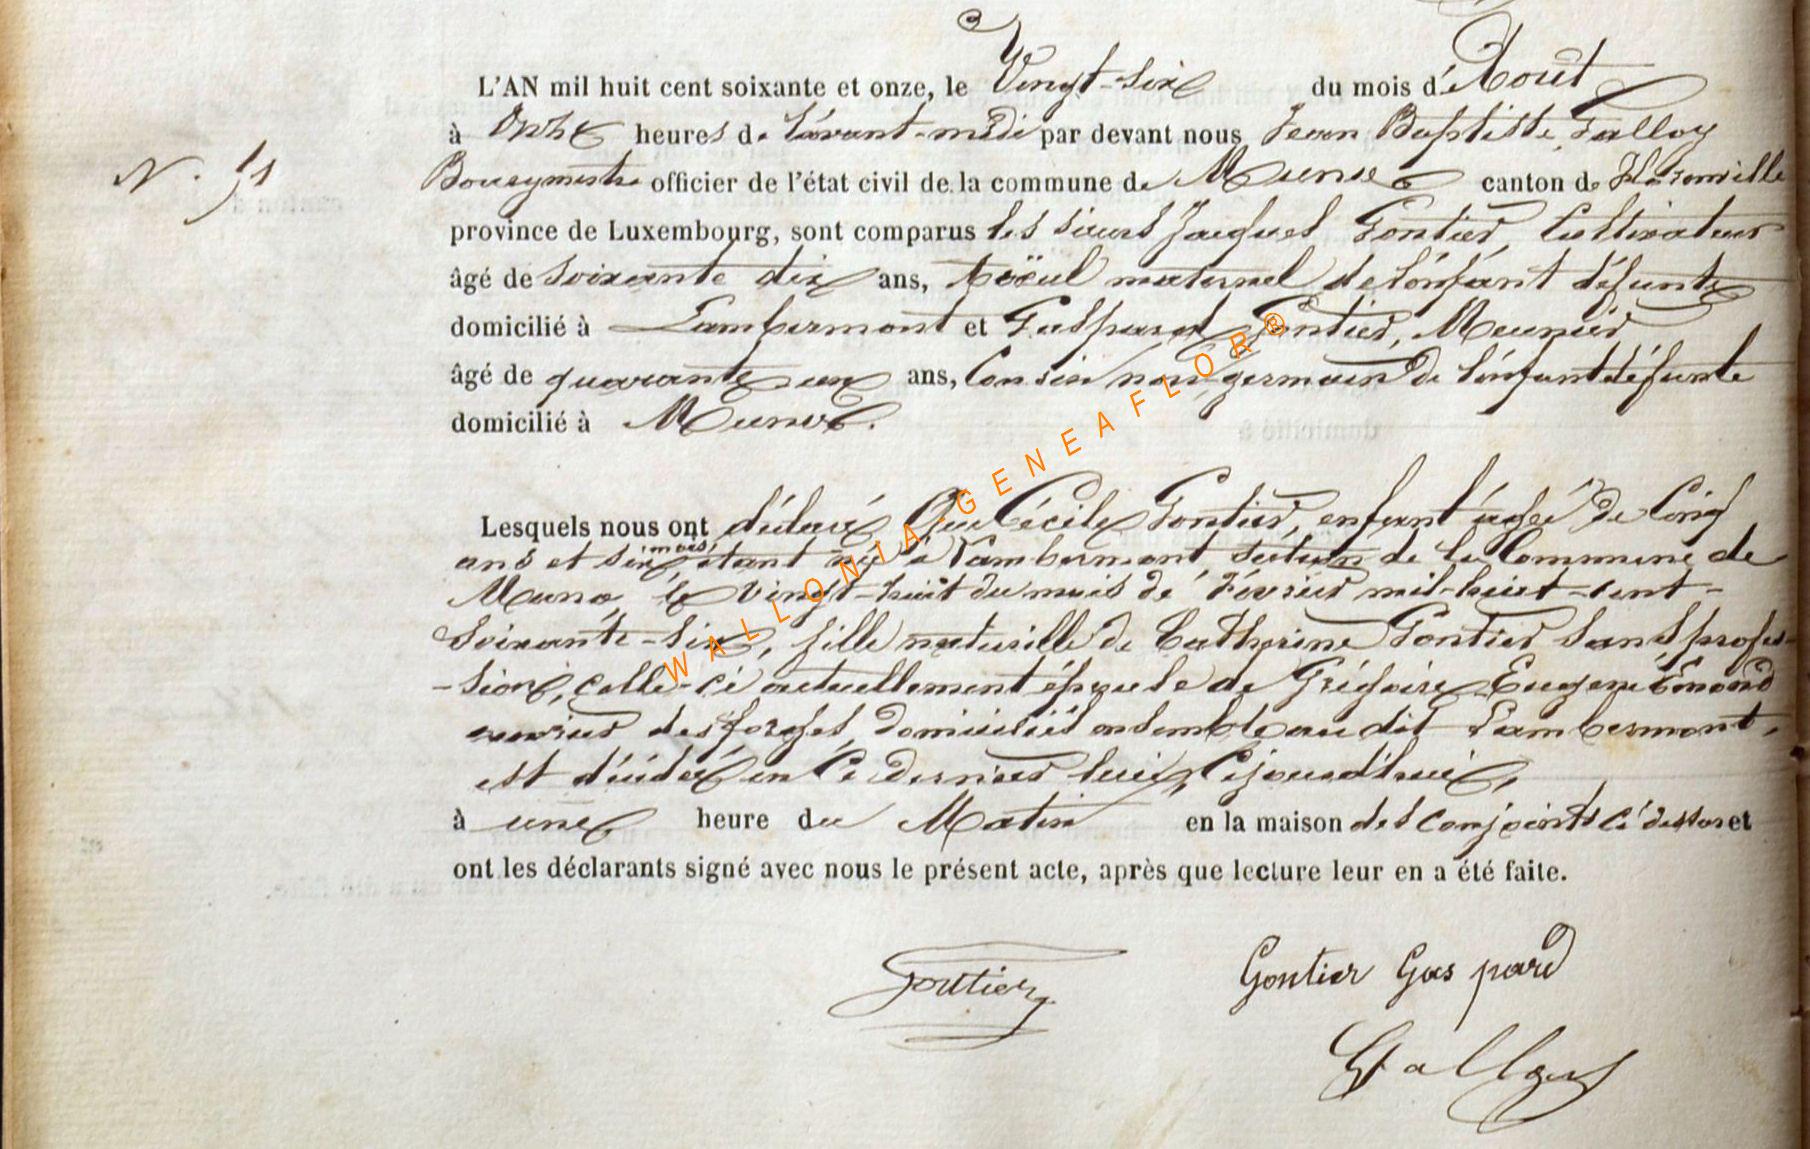 L'AN mil huit cent soixante et onze, le Vingt-six du mois d'Aout
à Onze heures de l'avant-midi par devant nous Jean Baptiste Galloy
N. 51
Bourgmestre officier de l'état civil de la commune de Muno canton de Florenville
province de Luxembourg, sont comparus les sieurs Jacques Gontier, Cultivateur
âgé de soixante dix ans, Aöeul maternel de l'enfant défunte
domicilié à Lambermont et Gaspard Gontier, Meunier
âgé de quarante un ans, Cousin non germain de l'enfant défunte
domicilié à Muno.
Lesquels nous ont déclaré Que Cécile Gontier, enfant agée de Cinq
ans et six mois, étant née à Lambermont, section de la Commune de
Muno, le vingt-huit du mois de Février mil-huit-cent-
soixante-six, fille naturelle de Catherine Gontier sans profes-
-sion, celle-ci actuellement épouse de Grégoire Eugene Emond
ouvrier des forges, domiciliés ensemble au dit Lambermont,
est décédée en ce dernier lieu, Cejourd'hui,
à une heure du Matin en la maison des conjoints ci dessus et
ont les déclarants signé avec nous le présent acte, après que lecture leur en a été faite.
Gontier
Gontier Gaspard
Galloy
WALLONIA-GENEAFLOR®